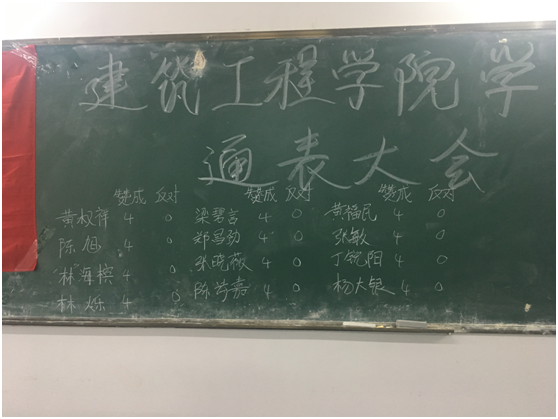 建筑工程学院学
通表大会
赞成 反对 赞成 反对 赞成 反对
黄权祥 4 0 梁碧言 4 0 黄福民 4 0
陈旭 4 0 郑昌勁 4 0 张敏 4 0
林海槟 4 0 张晓薇 4 0 丁锐阳 4 0
林烁 4 0 陈芳嘉 4 0 杨大银 4 0